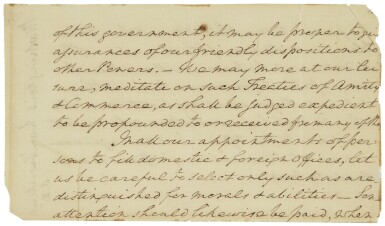 of this government, it may be proper to
assurances of our friendly dispositions to
other Powers. — We may more at our lei-
sure, meditate on such Treaties of Amity
& Commerce, as shall be judged expedient
to be propounded to or received from any of the
In all our appointments of per-
sons to fill domestic & foreign offices, let
us be careful to select only such as are
distinguished for morals & abilities — Some
attention should likewise be paid, when